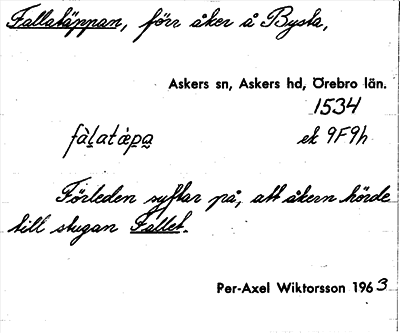 Fallatäppan, förr åker å Bysta,
Askers sn, Askers hd, Örebro län.
1534
fàl̠atä̀p̠a̠ ek 9F9h
Förleden syftar på, att åkern hörde
till stugan Fallet.
Per-Axel Wiktorsson 1963